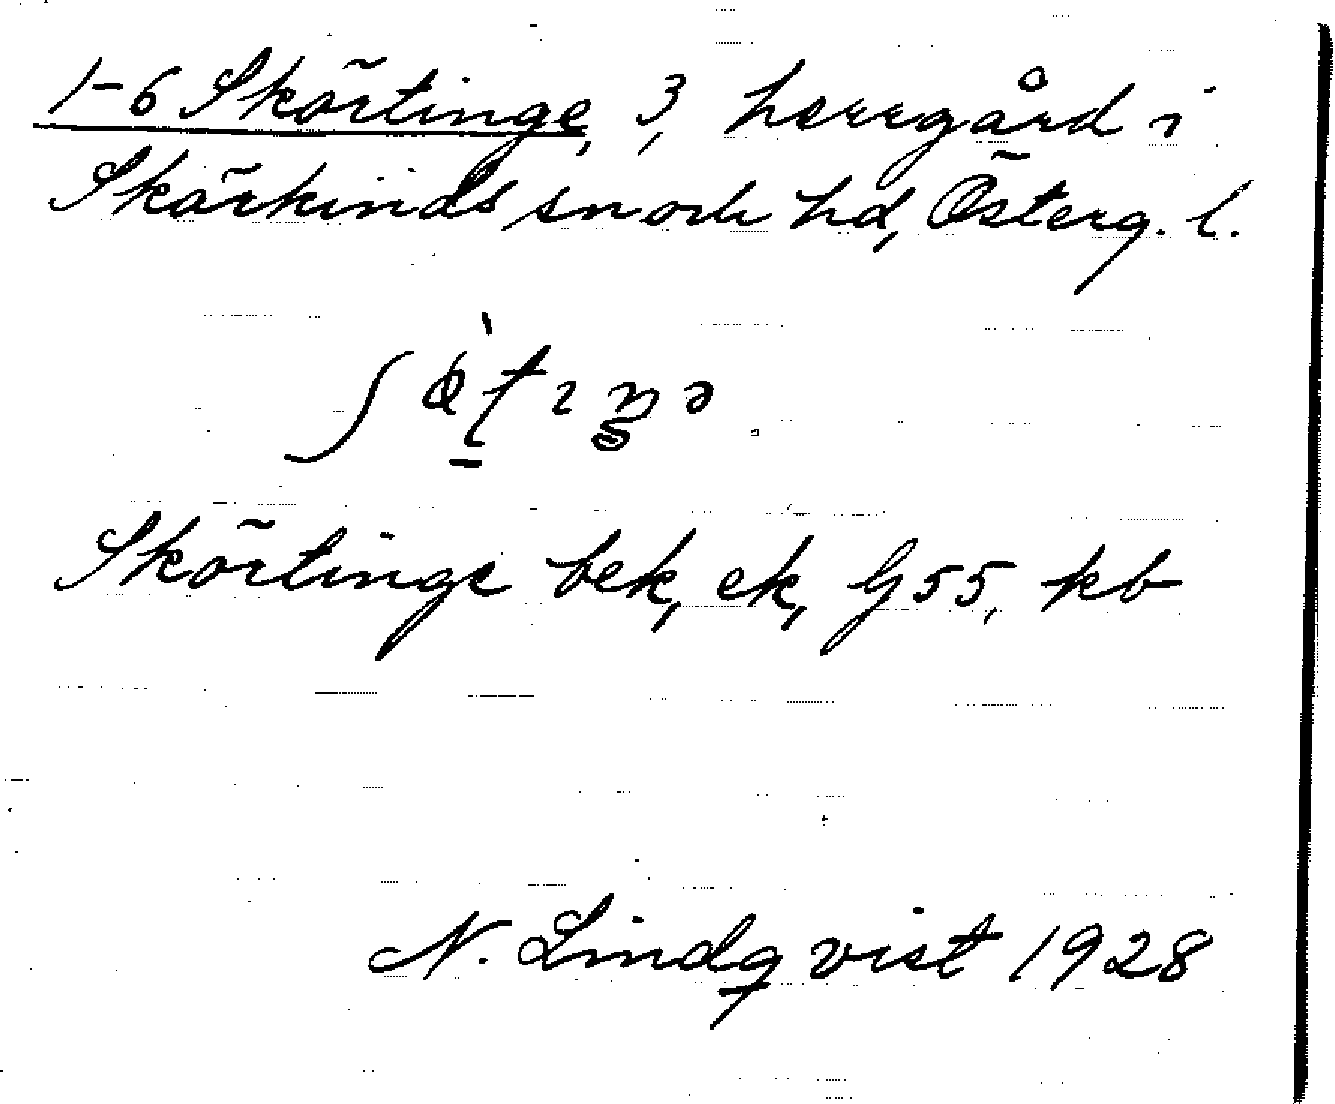 1-6 Skörtinge, 3, herrgård i
Skärkinds sn och hd, Österg. l.
Skörtinge bek, ek, G 55, kb
N. Lindqvist 1928